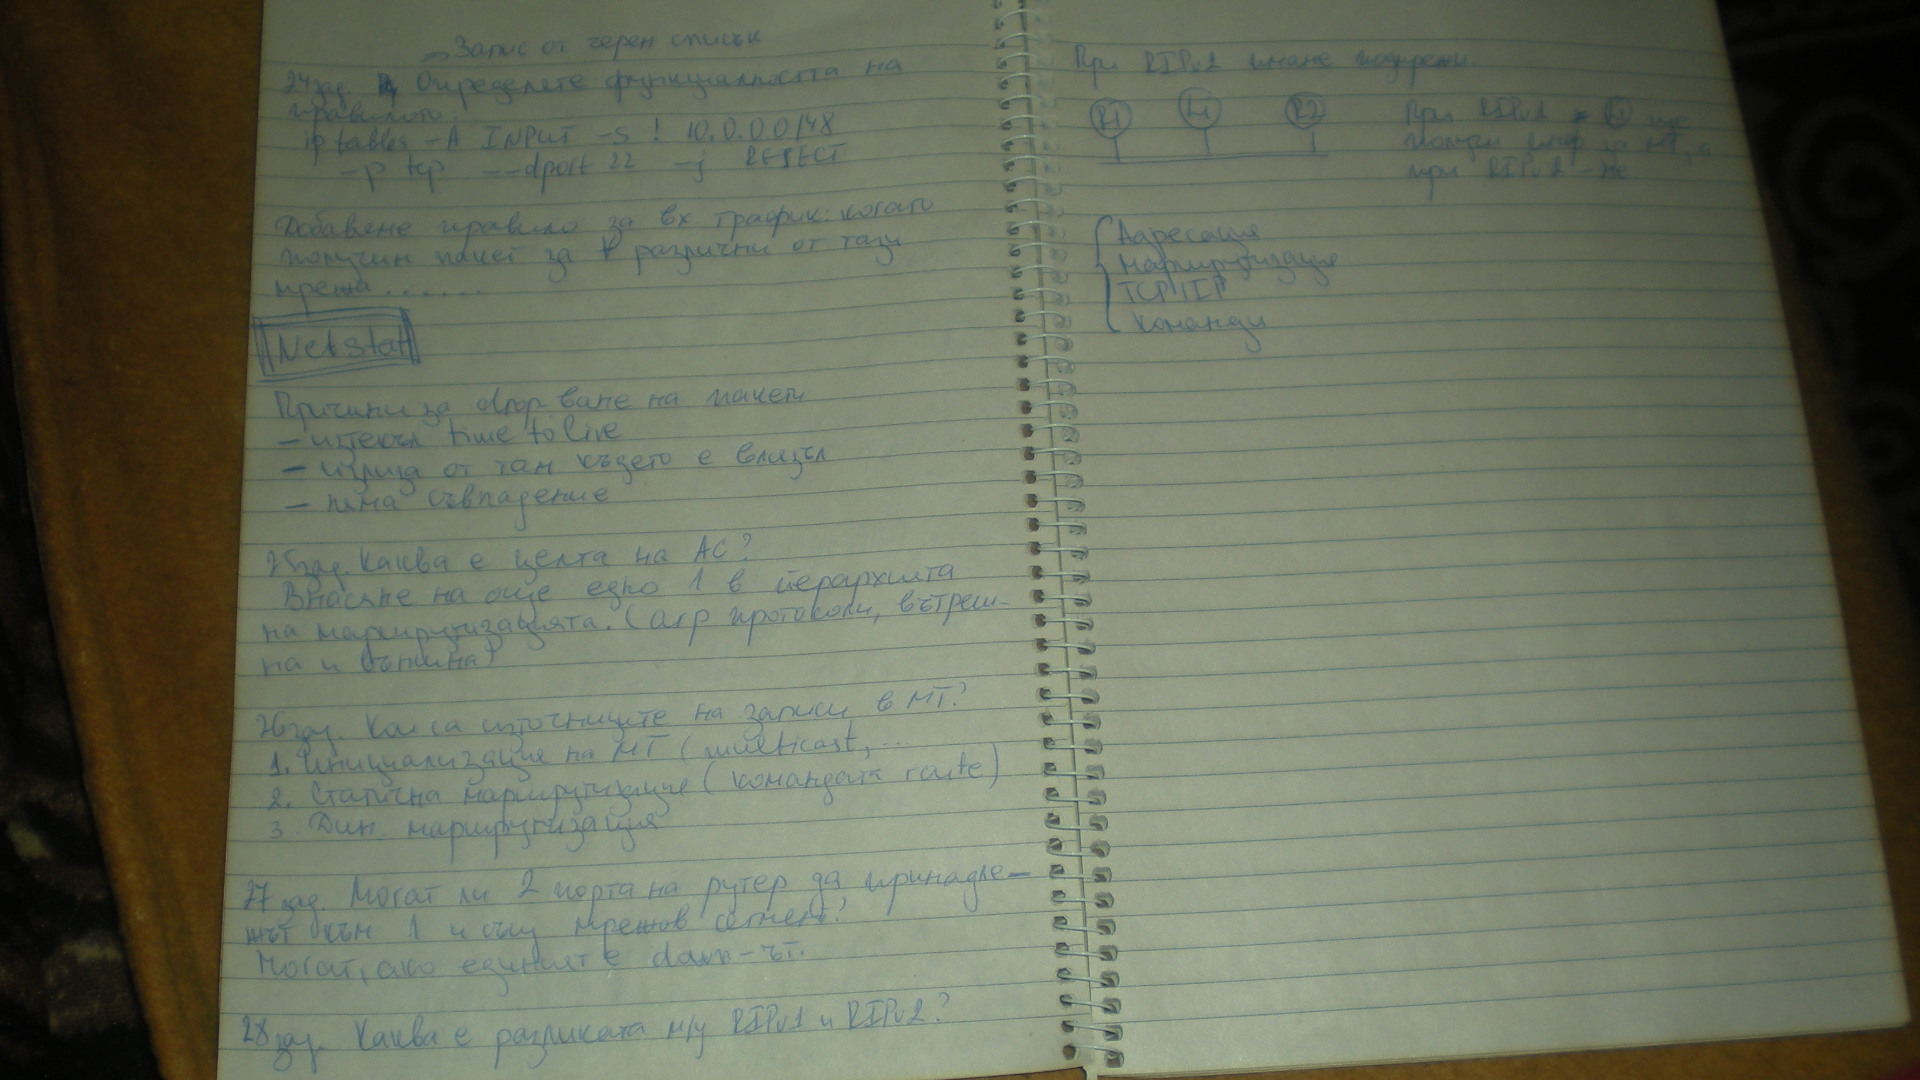 → Запис от черен списък
24зад. Определете функционалността на
правилото:
iptables -A INPUT -s ! 10.0.0.0/48
-p tcp --dport 22 -j REJECT
Добавяне правило за вх. трафик: когато
получим пакет за различни от тази
мрежа.......
Netstat
Причини за drop ване на пакети
- изтекъл time to live
- излиза от там където е влязъл
- няма съвпадение
25зад. Каква е целта на АС?
Внасяне на още едно 1 в йерархията
на маршрутизацията. ( протоколи, вътреш-
на и външна)
26зад. Кои са източниците на записи в МТ?
1. Инициализация на МТ (multicast, ...
2. Статична маршрутизация (командата route)
3. Дин. маршрутизация
27зад. Могат ли 2 порта на рутер да принадле-
жат към 1 и същ мрежов сегмент?
Могат, ако единият е down-ът.
28зад. Каква е разликата м/у RIPv1 и RIPv2?
При RIPv2 имаме подмрежи
R1 L1 R2
При RIPv1 L1 ще
получи инф за МТ, а
при RIPv2 - не
Адресация
маршрутизация
TCP/IP
команди